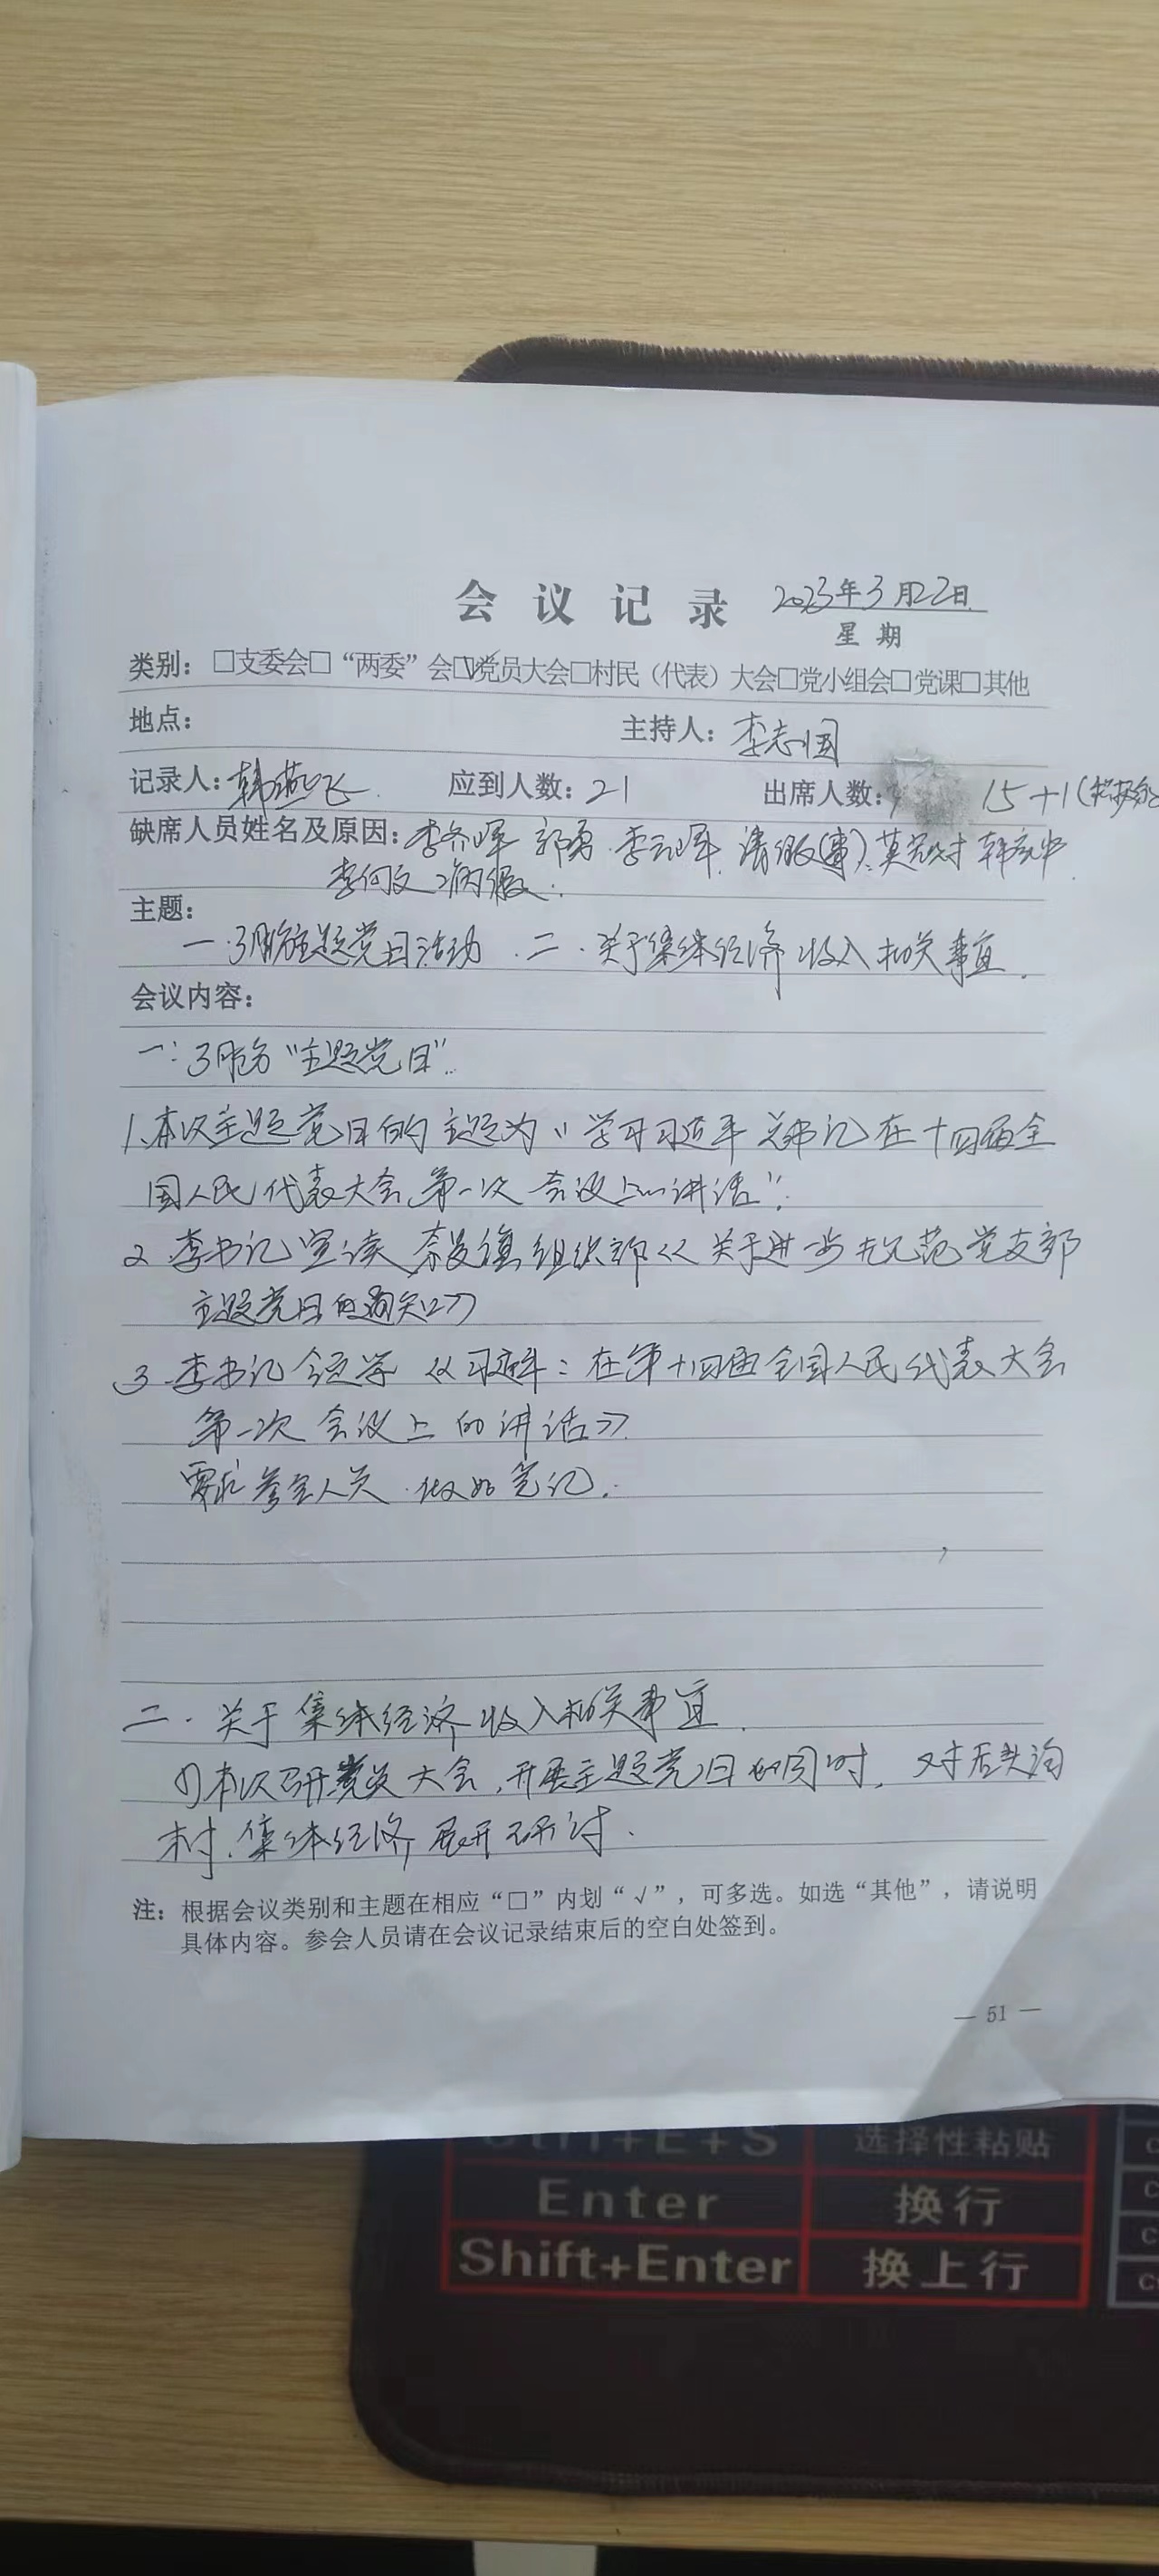 会议记录 2023年3月22日
星期
类别：□支委会□“两委”会□√党员大会□村民（代表）大会□党小组会□党课□其他
地点： 主持人：李志国
记录人：韩燕飞 应到人数：21 出席人数： 15+1(积极分
缺席人员姓名及原因：李 军 郭勇 李 军 请假(事)、莫 才 韩
李何文 病假.
主题：
一.3月份主题党日活动 .二.关于集体经济收入相关事宜.
会议内容：
一：3月份“主题党日”.
1、本次主题党日的主题为“学习习近平总书记在十四届全
国人民代表大会第一次会议上的讲话”.
2.李书记宣读 组织部《关于进一步规范党支部
主题党日的通知》
3.李书记领学《习近平：在第十四届全国人民代表大会
第一次会议上的讲话》
要求参会人员.做好笔记.
二.关于集体经济收入相关事宜.
(1)本次召开党员大会,开展主题党日的同时,对后头沟
村.集体经济展开研讨.
注：根据会议类别和主题在相应“□”内划“√”，可多选。如选“其他”，请说明
具体内容。参会人员请在会议记录结束后的空白处签到。
— 51 —
Ctrl+E+S 选择性粘贴
Enter 换行
Shift+Enter 换上行